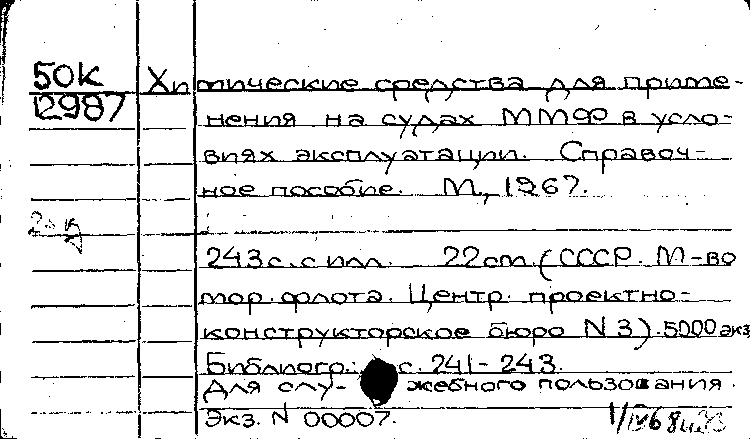 50К
12987
Химические средства для приме-
нения на судах ММФ в усло-
виях эксплуатации. Справоч-
ное пособие. М., 1967.
243 с. с илл. 22 cm. (СССР. М-во
мор. флота. Центр. проектно-
конструкторское бюро N 3). 5000 экз
Библиогр.: с. 241-243.
Для слу- жебного пользования.
Экз. N 00007.